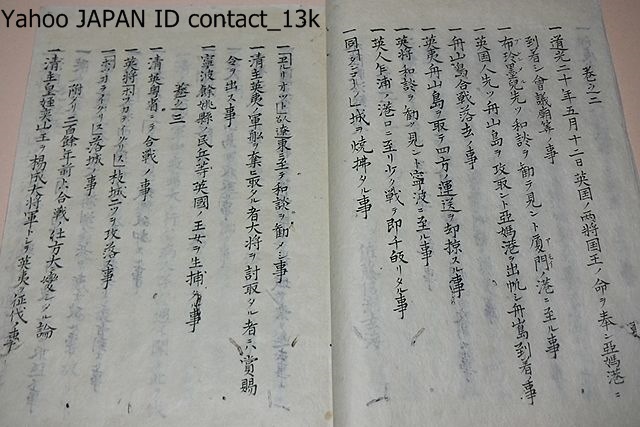 Yahoo JAPAN ID contact_13k
巻之二
一道光二十年五月十二日英国ノ両将国王ノ命ヲ奉シ亞媽港ニ
到着シ會議廟筭ノ事
一布玲墨兒先ツ和談ヲ勧テ見ント厦門ノ港ニ至ル事
一英国人先ツ舟山島ヲ攻取ント亞媽港ヲ出帆シ舟山島到着ノ事
一舟山島合戦落去ノ事
一英夷舟山島ヲ取テ四方ノ運送ヲ却掠スル事
一英将和談ヲ勧ノ見ント寧波ニ至ル事
一英人下浦ノ港口ニ至リ少ノ戦ヲ即千
リタル事
一同
城ヲ焼拂タル事
一ヱルリオット
遼東ニ至テ和談ヲ勧ノシ事
一清主英夷ノ軍船ヲ棄ニ取タル者大将ヲ討取タル者ニハ賞賜
令ヲ出ス事
一寧波餘姚縣ノ民兵等英國ノ王女ヲ生捕タル事
巻之三
一清英粤省ニテ合戦ノ事
一英将
枝城二ツヲ攻落ス事
落城ノ事
附タリ二百餘年前
合戦ノ仕方大
ノ論
一清主皇姪奕山王ヲ
大将軍トシ英夷ヲ征伐ノ事